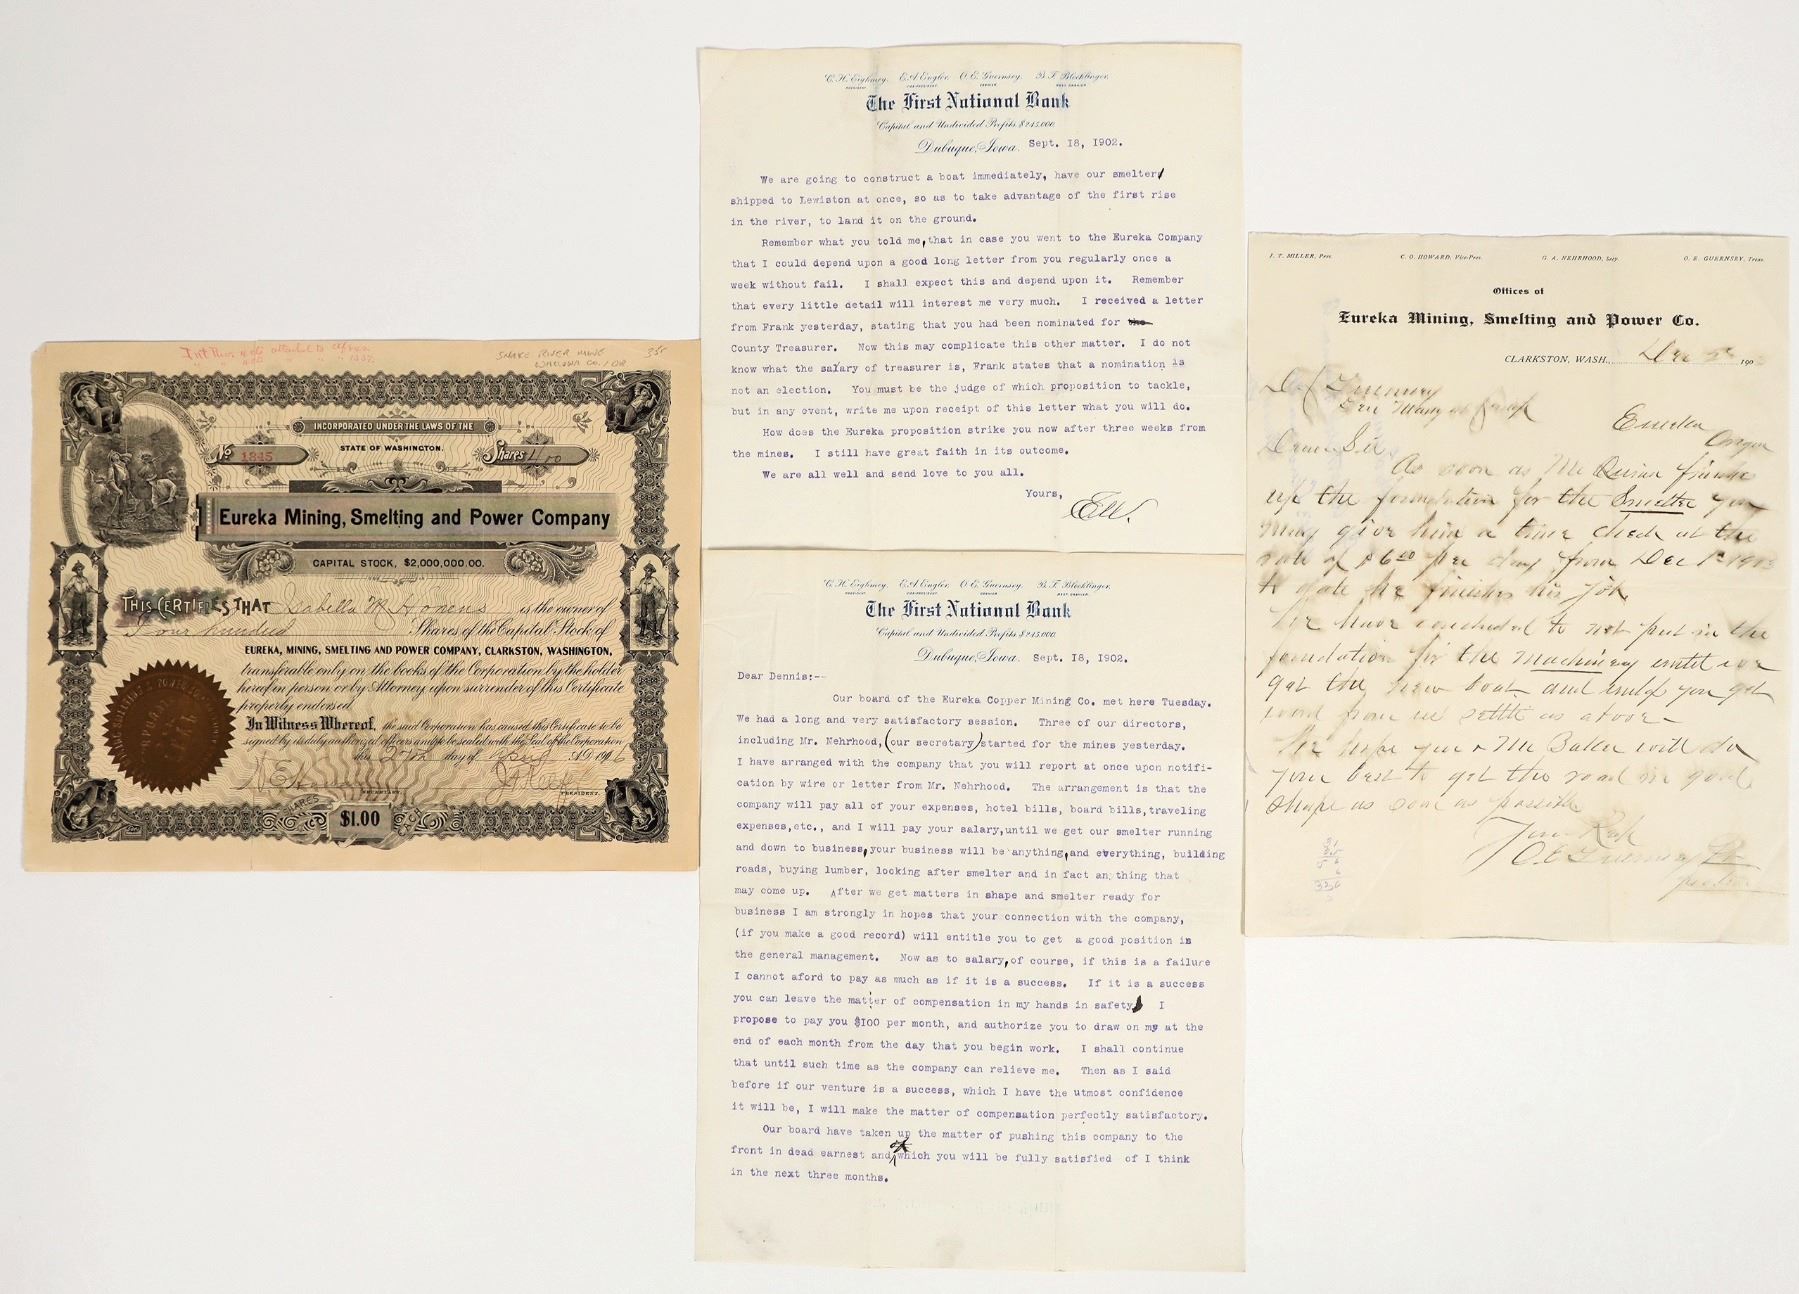 SNAKE RIVER MINE
35-
INCORPORATED UNDER THE LAWS OF THE
STATE OF WASHINGTON.
No 1845
Shares 400
Eureka Mining, Smelting and Power Company
CAPITAL STOCK, $2,000,000.00.
THIS CERTIFIES THAT Isabella M is the owner of
Four hundred Shares of the Capital Stock of
EUREKA, MINING, SMELTING AND POWER COMPANY, CLARKSTON, WASHINGTON,
transferable only on the books of the Corporation by the holder
hereof in person or by Attorney upon surrender of this Certificate
properly endorsed.
In Witness Whereof, the said Corporation has caused this Certificate to be
signed by its duly authorized officers and to be sealed with the Seal of the Corporation
this 27th day of April A.D. 1906
SECRETARY.
PRESIDENT.
SHARES
$1.00
C. H. Eighmey. E. A. Engler. O. E. Guernsey. B. F. Blocklinger.
PRESIDENT VICE-PRESIDENT CASHIER ASST. CASHIER
The First National Bank
Capital and Undivided Profits $245,000.
Dubuque, Iowa. Sept. 18, 1902.
We are going to construct a boat immediately, have our smelter
shipped to Lewiston at once, so as to take advantage of the first rise
in the river, to land it on the ground.
Remember what you told me, that in case you went to the Eureka Company
that I could depend upon a good long letter from you regularly once a
week without fail. I shall expect this and depend upon it. Remember
that every little detail will interest me very much. I received a letter
from Frank yesterday, stating that you had been nominated for the
County Treasurer. Now this may complicate this other matter. I do not
know what the salary of treasurer is, Frank states that a nomination is
not an election. You must be the judge of which proposition to tackle,
but in any event, write me upon receipt of this letter what you will do.
How does the Eureka proposition strike you now after three weeks from
the mines. I still have great faith in its outcome.
We are all well and send love to you all.
Yours,
C. H. Eighmey. E. A. Engler. O. E. Guernsey. B. F. Blocklinger.
PRESIDENT VICE-PRESIDENT CASHIER ASST. CASHIER
The First National Bank
Capital and Undivided Profits $245,000.
Dubuque, Iowa. Sept. 18, 1902.
Dear Dennis:--
Our board of the Eureka Copper Mining Co. met here Tuesday.
We had a long and very satisfactory session. Three of our directors,
including Mr. Nehrhood, (our secretary) started for the mines yesterday.
I have arranged with the company that you will report at once upon notifi-
cation by wire or letter from Mr. Nehrhood. The arrangement is that the
company will pay all of your expenses, hotel bills, board bills, traveling
expenses, etc., and I will pay your salary, until we get our smelter running
and down to business, your business will be anything, and everything, building
roads, buying lumber, looking after smelter and in fact anything that
may come up. After we get matters in shape and smelter ready for
business I am strongly in hopes that your connection with the company,
(if you make a good record) will entitle you to get a good position in
the general management. Now as to salary, of course, if this is a failure
I cannot aford to pay as much as if it is a success. If it is a success
you can leave the matter of compensation in my hands in safety. I
propose to pay you $100 per month, and authorize you to draw on my at the
end of each month from the day that you begin work. I shall continue
that until such time as the company can relieve me. Then as I said
before if our venture is a success, which I have the utmost confidence
it will be, I will make the matter of compensation perfectly satisfactory.
Our board have taken up the matter of pushing this company to the
front in dead earnest and of which you will be fully satisfied of I think
in the next three months.
J. T. MILLER, Pres. C. O. HOWARD, Vice-Pres. G. A. NEHRHOOD, Secy. O. E. GUERNSEY, Treas.
Offices of
Eureka Mining, Smelting and Power Co.
CLARKSTON, WASH., Dec 190
Eureka
Oregon
Dear Sir
As soon as Mc Quinn finish
up the foundation for the Smelter you
may give him a time check at the
rate of $6.00 per day from Dec 1st 1903
to date he finishes his job
We have concluded to not put in the
foundation for the Machinery until we
get the new boat and unless you get
word from us settle as above -
We hope you & Mr Baker will do
your best to get the road in good
shape as soon as possible
O. E. Guernsey